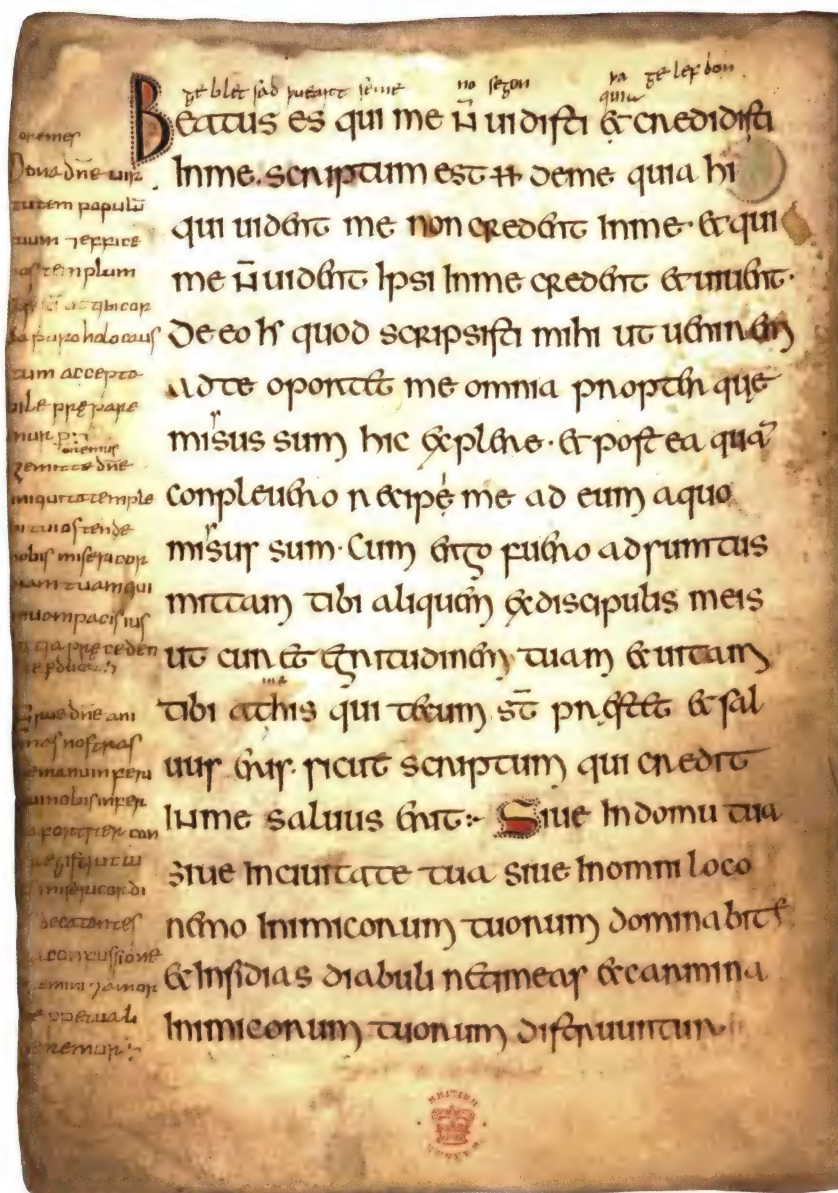 ge blet sad
no segon
ge lef don
Beatus es qui me n̄ uidisti & credidisti
Inme. scriptum est ħ deme quia hi
qui uident me non credent Inme· & qui
me n̄ uident Ipsi Inme credent & uiuent·
De eo hr quod scripsisti mihi ut uenirem
adte oportet me omnia propter que
misus sum hic explere· & post ea quā
conpleuero recipe me ad eum aquo
misus sum· Cum ergo fuero adsumtus
mittam tibi aliquem exdiscipulis meis
ut curet egritudinem tuam & uitam
tibi athis qui tecum st̄ prestet & sal
uus eris· sicut scriptum qui credit
Inme saluus erit:- Siue Indomu tua
siue Inciuitate tua siue Inomni loco
nemo Inimicorum tuorum dominabit
& Insidias diabuli netimeas & carmina
Inimicorum tuorum distruuntur
oremus
Dona dn̄e uir
tutem populū
templum
holocaus
tum accepta
bile prepare
mur
oremus
dn̄e
temple
ostende
nobis misericor
diam tuam qui
preceden
dn̄e ani
mas nostras
nobis
misericordi
concussione
BRITISH
MUSEUM